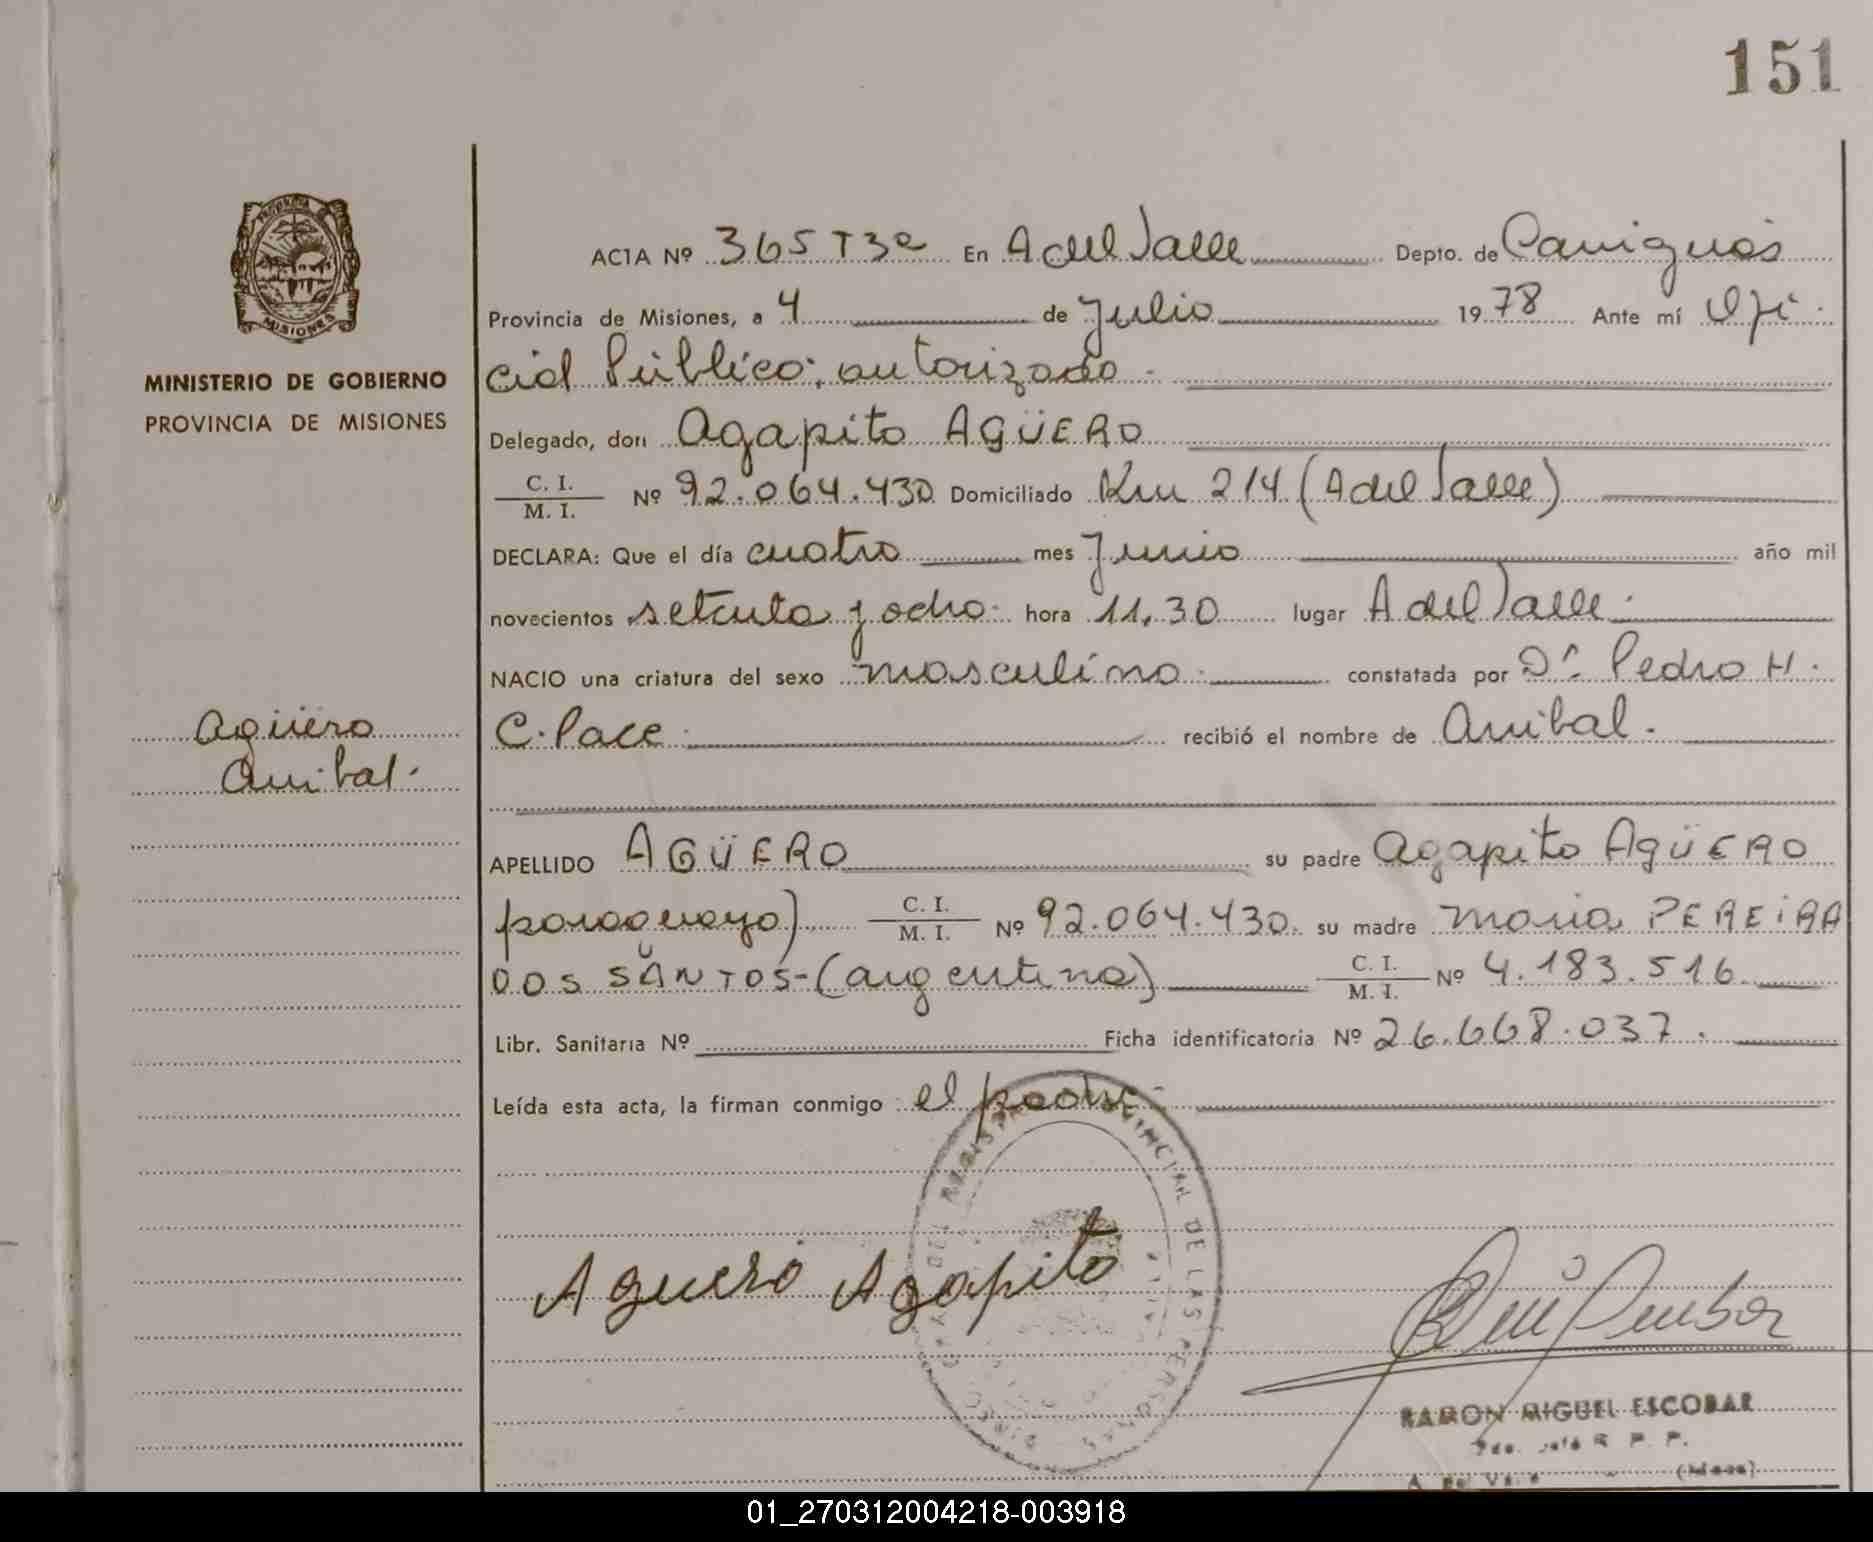 151
PROVINCIA
MISIONES
MINISTERIO DE GOBIERNO
PROVINCIA DE MISIONES
Agüero
Anibal.
ACTA Nº 365 T3º En A del Valle Depto. de Cainguás
Provincia de Misiones, a 4 de Julio 1978 Ante mí Ofi-
cial Público: autorizado.
Delegado, don Agapito AGÜERO
C. I.
M. I. Nº 92.064.430 Domiciliado Km 214 (A del Valle)
DECLARA: Que el día cuatro mes Junio año mil
novecientos setenta y ocho. hora 11,30 lugar A del Valle.
NACIO una criatura del sexo masculino. constatada por Dr. Pedro H.
C. Pace. recibió el nombre de Anibal.
APELLIDO AGÜERO su padre Agapito AGÜERO
paraguayo) C. I.
M. I. Nº 92.064.430. su madre Maria PEREIRA
DOS SANTOS-(argentina) C. I.
M. I. Nº 4.183.516.
Libr. Sanitaria Nº Ficha identificatoria Nº 26.668.037.
Leída esta acta, la firman conmigo el padre.
REGISTRO PROVINCIAL DE LAS PERSONAS
Aguero Agapito
RAMON MIGUEL ESCOBAR
01_270312004218-003918